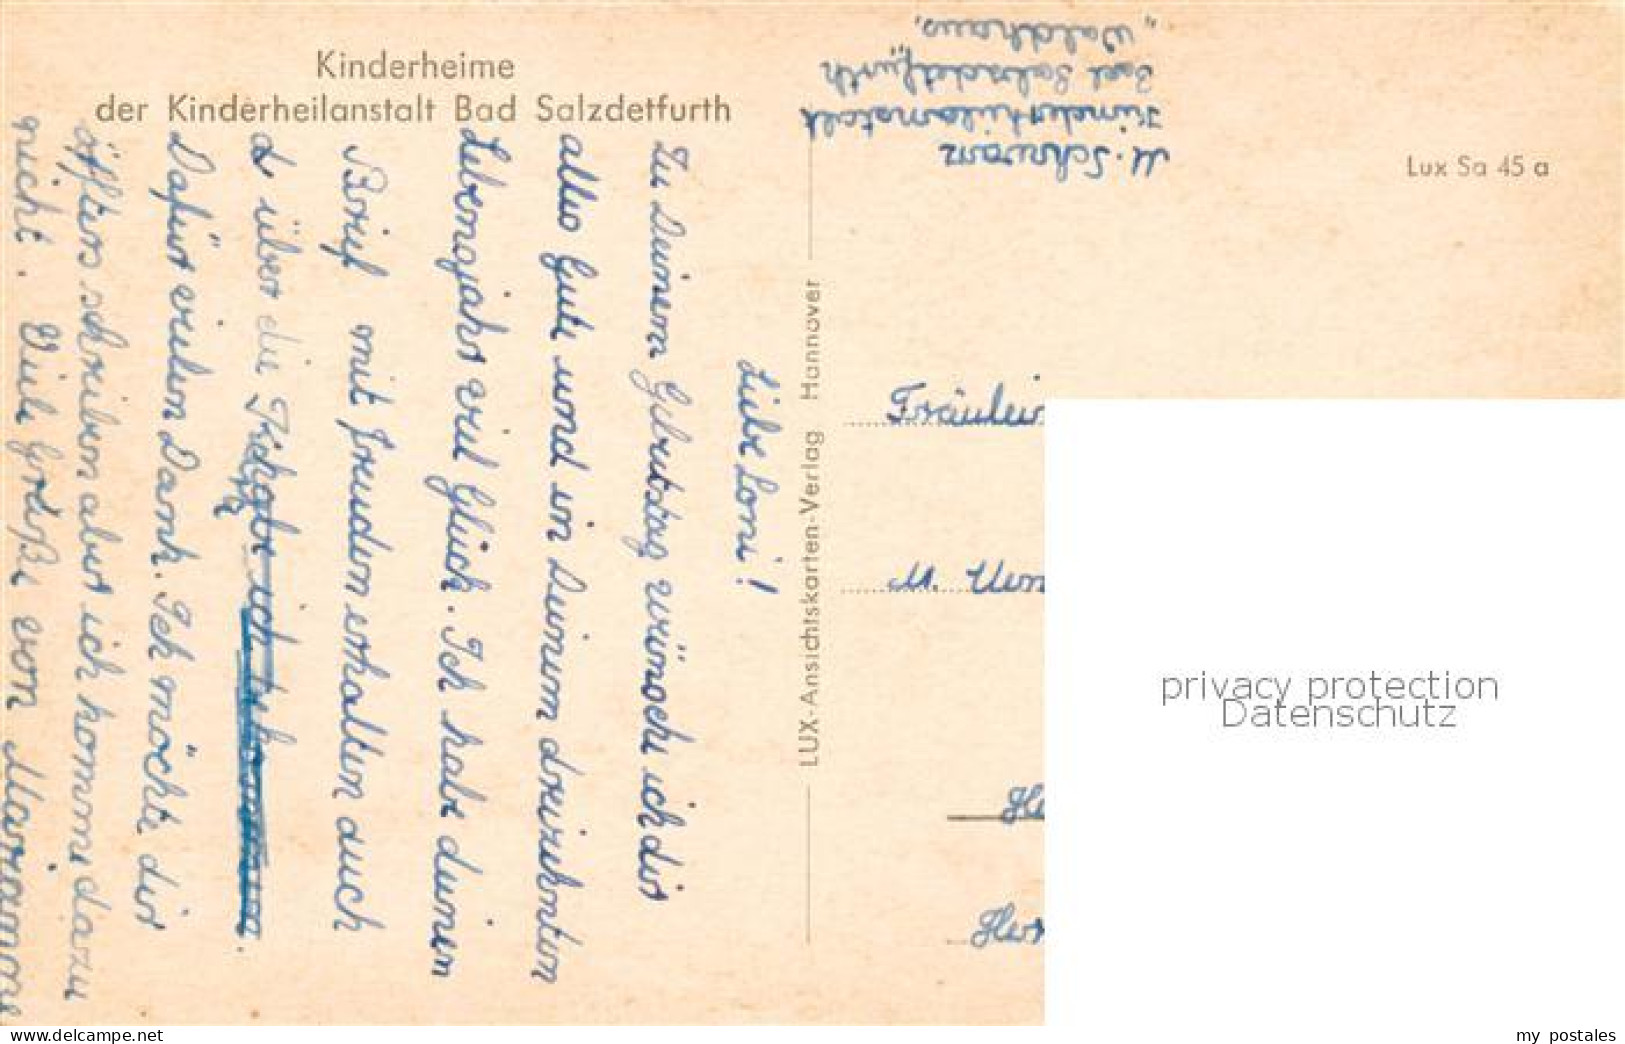 Kinderheime
der Kinderheilanstalt Bad Salzdetfurth
Liebe Loni!
Zu Deinem Gebutstag wünsche ich dir
alles Gute und in Deinem dreizehnten
Lebensjahr viel Glück. Ich habe deinen
Brief mit freuden erhalten auch
über die
Dafür vielen Dank. Ich möchte dir
öfters schreiben aber ich komme dazu
nicht. Viele Grüße von Marianne
LUX-Ansichtskarten-Verlag Hannover
M. Schwarz
Kinderheilanstalt
Bad Salzdetfurth
„Waldhaus„
Lux Sa 45 a
Fräulein
M.
privacy protection
Datenschutz
my postales